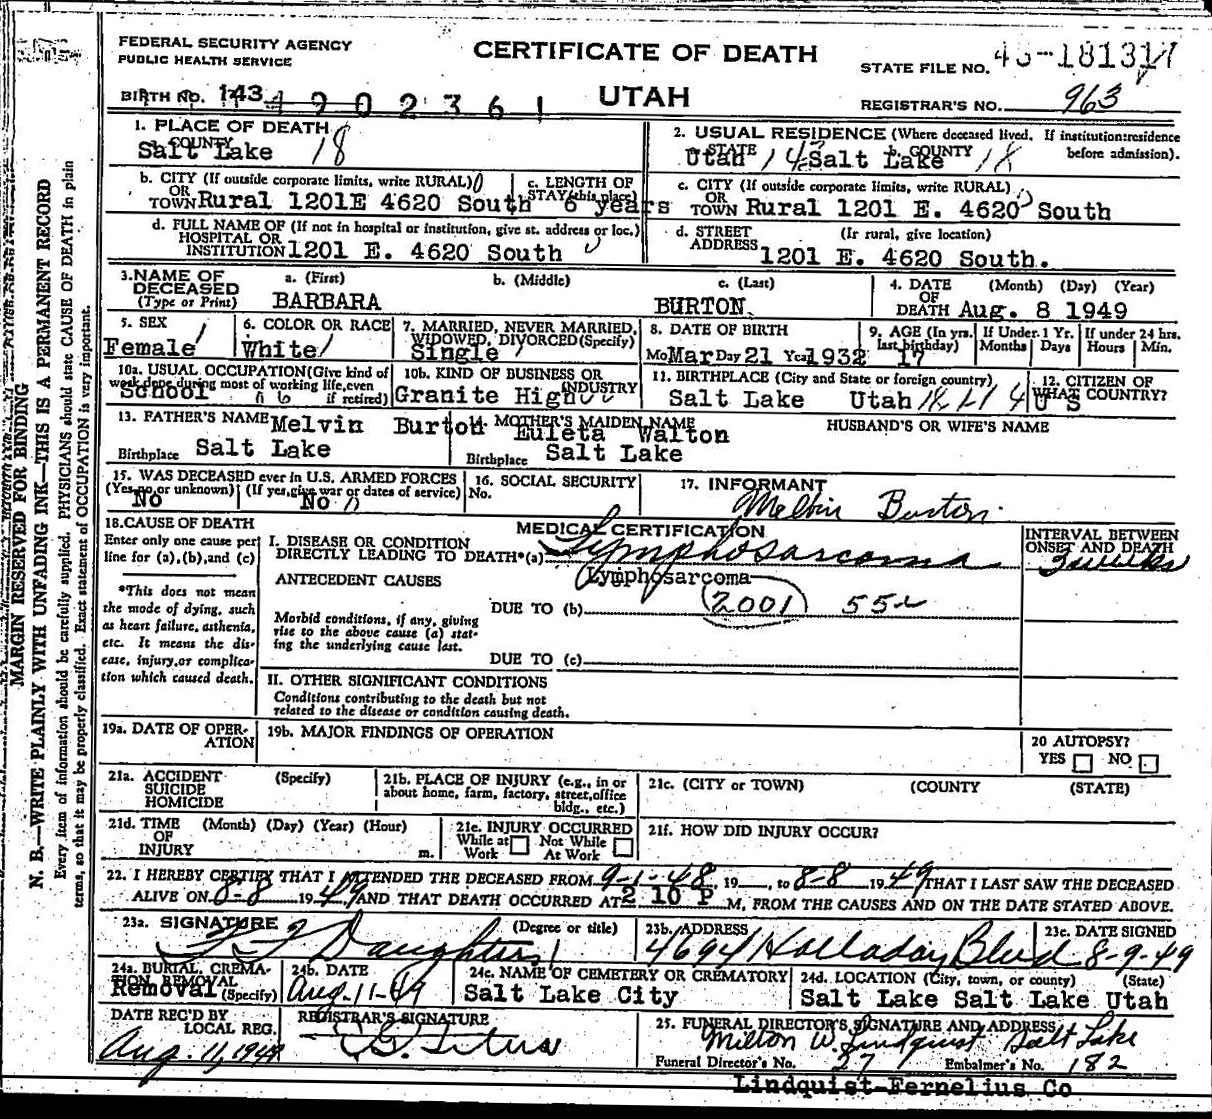 FEDERAL SECURITY AGENCY
PUBLIC HEALTH SERVICE
CERTIFICATE OF DEATH
STATE FILE NO.
BIRTH NO. 143 4 9 0 2 3 6 1
UTAH
REGISTRAR'S NO. 963
1. PLACE OF DEATH
a. COUNTY Salt Lake 18
2. USUAL RESIDENCE (Where deceased lived. If institution: residence before admission).
a. STATE Utah b. COUNTY Salt Lake 18
b. CITY (If outside corporate limits, write RURAL)
OR
TOWN Rural 1201E 4620 South
c. LENGTH OF
STAY (this place) 6 years
c. CITY (If outside corporate limits, write RURAL)
OR
TOWN Rural 1201 E. 4620 South
d. FULL NAME OF (If not in hospital or institution, give st. address or loc.)
HOSPITAL OR
INSTITUTION 1201 E. 4620 South
d. STREET (If rural, give location)
ADDRESS 1201 E. 4620 South.
3. NAME OF DECEASED (Type or Print)
a. (First) b. (Middle) c. (Last)
BARBARA BURTON
4. DATE OF DEATH (Month) (Day) (Year)
Aug. 8 1949
5. SEX
Female
6. COLOR OR RACE
White
7. MARRIED, NEVER MARRIED, WIDOWED, DIVORCED (Specify)
Single
8. DATE OF BIRTH
Mo Mar Day 21 Year 1932
9. AGE (In yrs. last birthday) 17
If Under 1 Yr. Months Days
If under 24 hrs. Hours Min.
10a. USUAL OCCUPATION (Give kind of work done during most of working life, even if retired)
School
10b. KIND OF BUSINESS OR INDUSTRY
Granite High
11. BIRTHPLACE (City and State or foreign country)
Salt Lake Utah
12. CITIZEN OF WHAT COUNTRY?
U S
13. FATHER'S NAME Melvin Burton
Birthplace Salt Lake
14. MOTHER'S MAIDEN NAME
Euleta Walton
Birthplace Salt Lake
HUSBAND'S OR WIFE'S NAME
15. WAS DECEASED ever in U.S. ARMED FORCES
(Yes, no or unknown) (If yes, give war or dates of service)
No No
16. SOCIAL SECURITY
No.
17. INFORMANT
Melvin Burton
18. CAUSE OF DEATH
Enter only one cause per line for (a), (b), and (c)
*This does not mean the mode of dying, such as heart failure, asthenia, etc. It means the disease, injury, or complication which caused death.
MEDICAL CERTIFICATION
I. DISEASE OR CONDITION
DIRECTLY LEADING TO DEATH*(a) Lymphosarcoma
INTERVAL BETWEEN ONSET AND DEATH
ANTECEDENT CAUSES
Lymphosarcoma
DUE TO (b) 2001
Morbid conditions, if any, giving rise to the above cause (a) stating the underlying cause last.
DUE TO (c)
II. OTHER SIGNIFICANT CONDITIONS
Conditions contributing to the death but not related to the disease or condition causing death.
19a. DATE OF OPERATION
19b. MAJOR FINDINGS OF OPERATION
20 AUTOPSY?
YES NO
21a. ACCIDENT SUICIDE HOMICIDE (Specify)
21b. PLACE OF INJURY (e.g., in or about home, farm, factory, street, office bldg., etc.)
21c. (CITY or TOWN) (COUNTY (STATE)
21d. TIME OF INJURY (Month) (Day) (Year) (Hour) m.
21e. INJURY OCCURRED
While at Work Not While At Work
21f. HOW DID INJURY OCCUR?
22. I HEREBY CERTIFY THAT I ATTENDED THE DECEASED FROM 9-1-48, 19 , to 8-8 1949 THAT I LAST SAW THE DECEASED
ALIVE ON 8-8 1949, AND THAT DEATH OCCURRED AT 2 10 P M, FROM THE CAUSES AND ON THE DATE STATED ABOVE.
23a. SIGNATURE (Degree or title)
Daughters
23b. ADDRESS
4694 Holladay Blvd
23c. DATE SIGNED
8-9-49
24a. BURIAL, CREMATION, REMOVAL (Specify)
Removal
24b. DATE
Aug. 11-49
24c. NAME OF CEMETERY OR CREMATORY
Salt Lake City
24d. LOCATION (City, town, or county) (State)
Salt Lake Salt Lake Utah
DATE REC'D BY LOCAL REG.
Aug. 11, 1949
REGISTRAR'S SIGNATURE
25. FUNERAL DIRECTOR'S SIGNATURE AND ADDRESS
Milton W. Lindquist Salt Lake
Funeral Director's No. 27 Embalmer's No. 182
Lindquist-Fernelius Co
MARGIN RESERVED FOR BINDING
N. B.—WRITE PLAINLY WITH UNFADING INK—THIS IS A PERMANENT RECORD
Every item of information should be carefully supplied. PHYSICIANS should state CAUSE OF DEATH in plain
terms, so that it may be properly classified. Exact statement of OCCUPATION is very important.